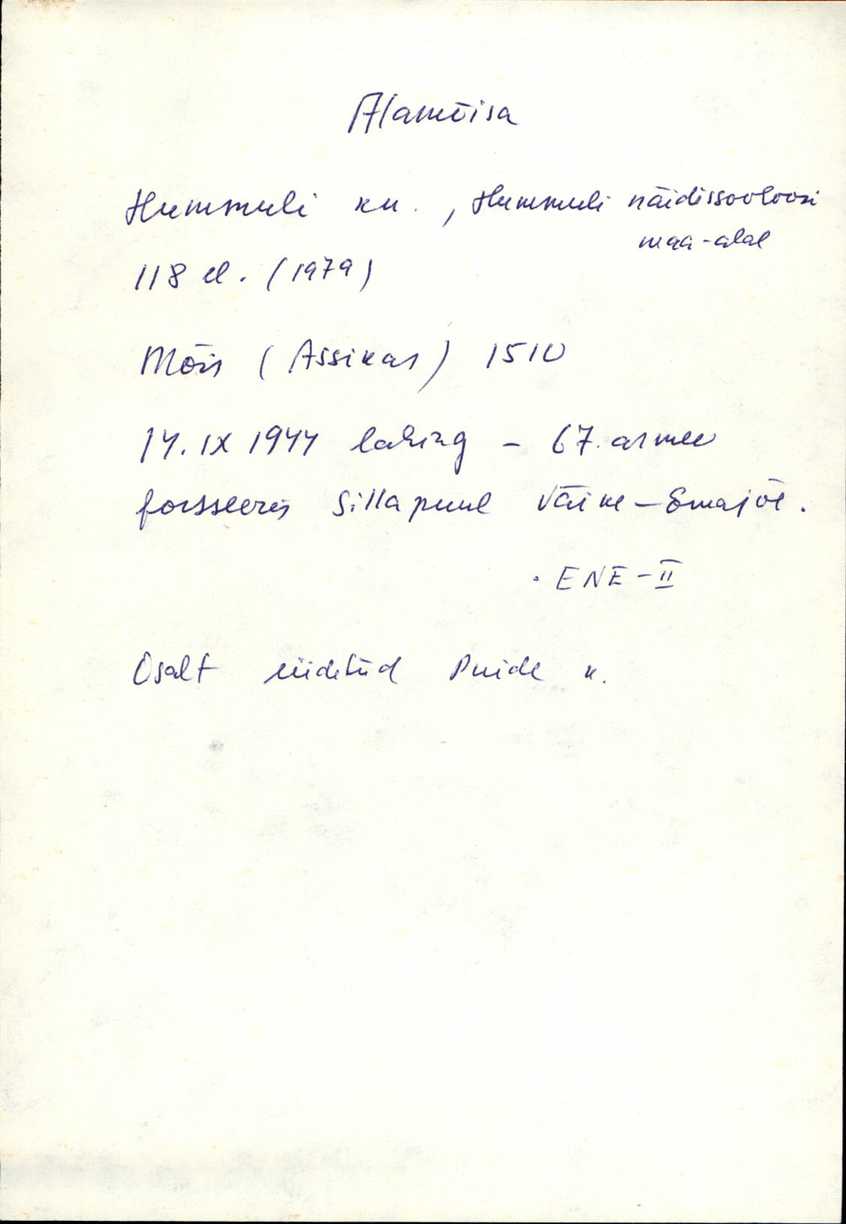 Alamõisa
Hummuli kn., Hummuli näidissovhoosi
maa-alal
118 el. (1979)
Mõis (Assikas) 1510
14. IX 1944 lahing – 67. armee
forsseeris Silla puul Väike-Emajõe.
. ENE-II
Osalt liidetud Puide k.